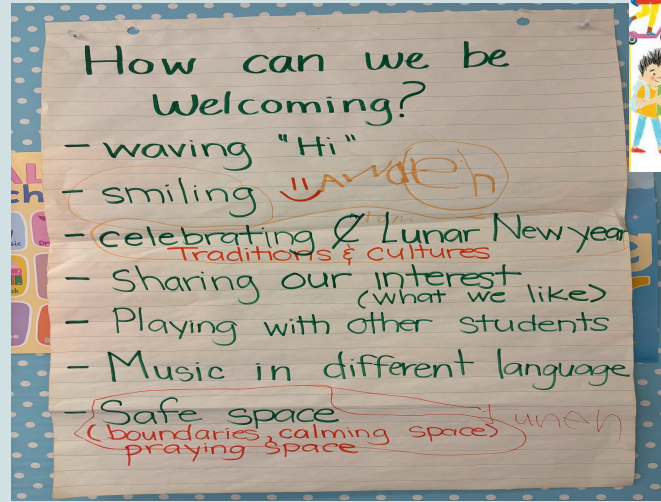 How can we be
Welcoming?
- waving "Hi"
- smiling
- celebrating Lunar New year
Traditions & cultures
- Sharing our interest
(what we like)
- Playing with other students
- Music in different language
- Safe space
(boundaries, calming space)
praying space
Lunch